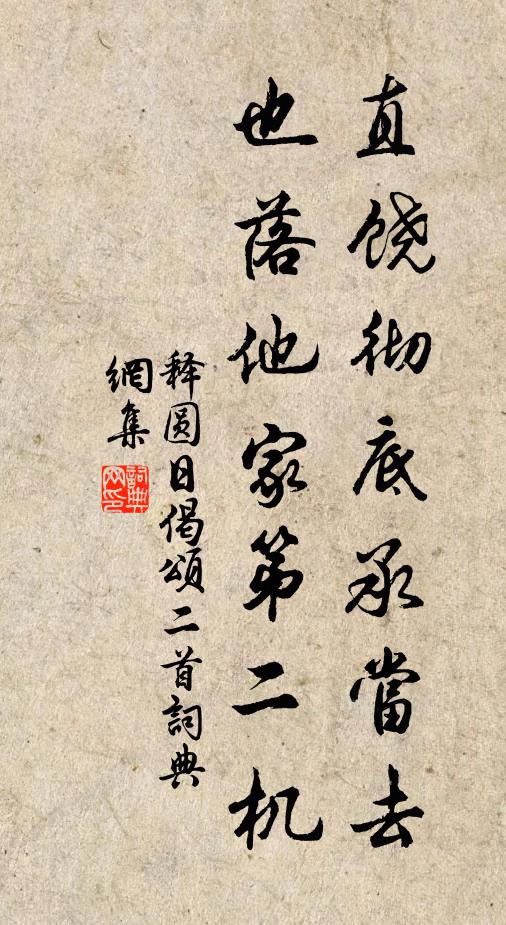 直饶彻底承當去
也落他家第二机
释圆日偈頌二首詞典
網集
詞典網印